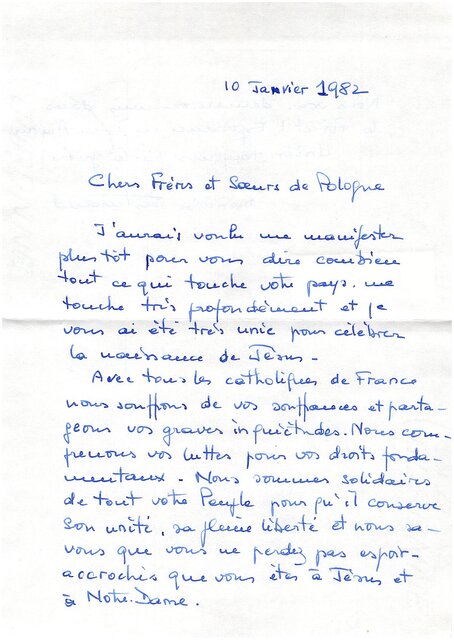 10 Janvier 1982
Chers Frères et Sœurs de Pologne
J'aurais voulu me manifester
plus tôt pour vous dire combien
tout ce qui touche votre pays, me
touche très profondément et je
vous ai été très unie pour célébrer
la naissance de Jésus -
Avec tous les catholiques de France
nous souffrons de vos souffrances et parta-
geons vos graves inquiétudes. Nous com-
prenons vos luttes pour vos droits fonda-
mentaux - Nous sommes solidaires
de tout votre Peuple pour qu'il conserve
son unité, sa pleine liberté et nous sa-
vons que vous ne perdez pas espoir -
accrochés que vous êtes à Jésus et
à Notre-Dame.